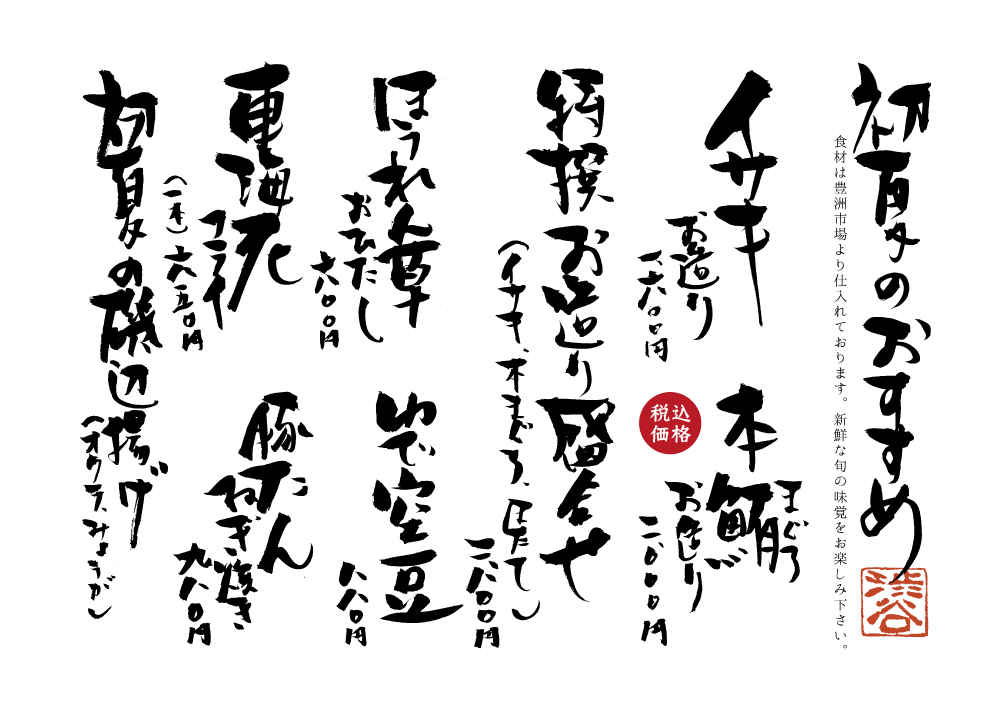 初夏のおすすめ
渋谷
食材は豊洲市場より仕入れております。新鮮な旬の味覚をお楽しみ下さい。
イサキ
お造り
一六〇〇円
本鮪
まぐろ
お造り
二〇〇〇円
税込
価格
特撰お造り盛合せ
（イサキ、本まぐろ、ほたて）
ほうれん草
おひたし
六〇〇円
ゆで空豆
八八〇円
車海老
フライ
（一本）六五〇円
豚たん
ねぎ焼き
九八〇円
初夏の磯辺揚げ
（オクラ、みょうが）